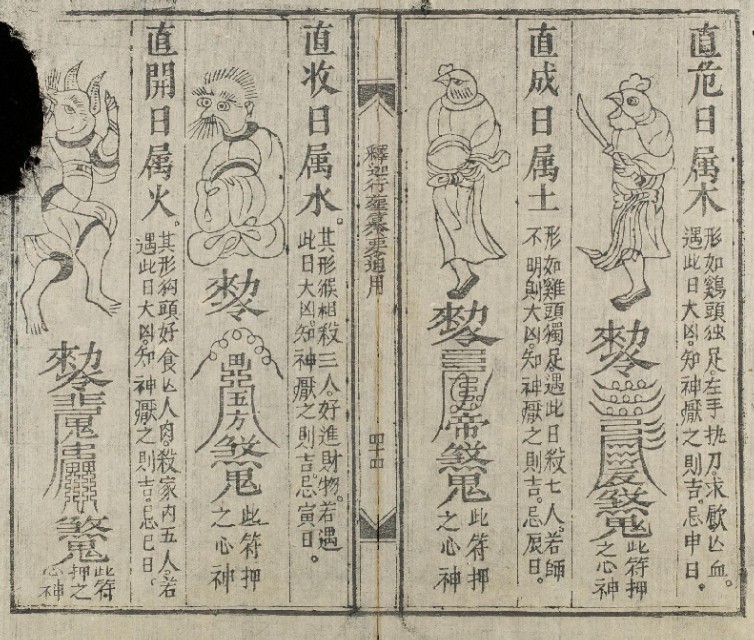 直危日属木
形如鷄頭独足左手执刀求歐亾血。
遇此日大凶。知神厭之則吉。忌申日。
敕令
煞鬼
此符押
之心神
直成日属土
形如雞頭獨足遇此日殺七人。若師
不明則大凶。知神厭之則吉。忌辰日。
敕令
帝煞鬼
此符押
之心神
四十四
直收日属水。
其形猴相殺三人。好進財物。若遇
此日大凶。知神厭之則吉。忌寅日。
敕令
五方煞鬼
此符押
之心神
直開日属火。
其形狗頭好食亾人肉殺家內五人。若
遇此日大凶。知神厭之則吉。忌巳日。
敕令
煞鬼
此符
押之
心神